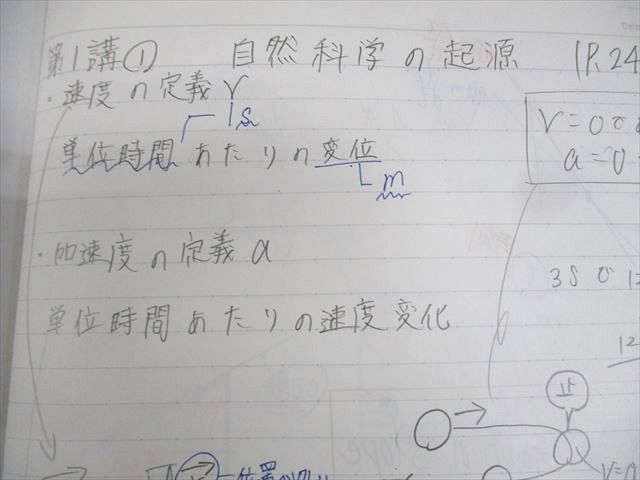 第1講① 自然科学の起源 (P.24
・速度の定義 v
1s
単位時間あたりの変位
m
・加速度の定義 a
単位時間あたりの速度変化
a=0
止